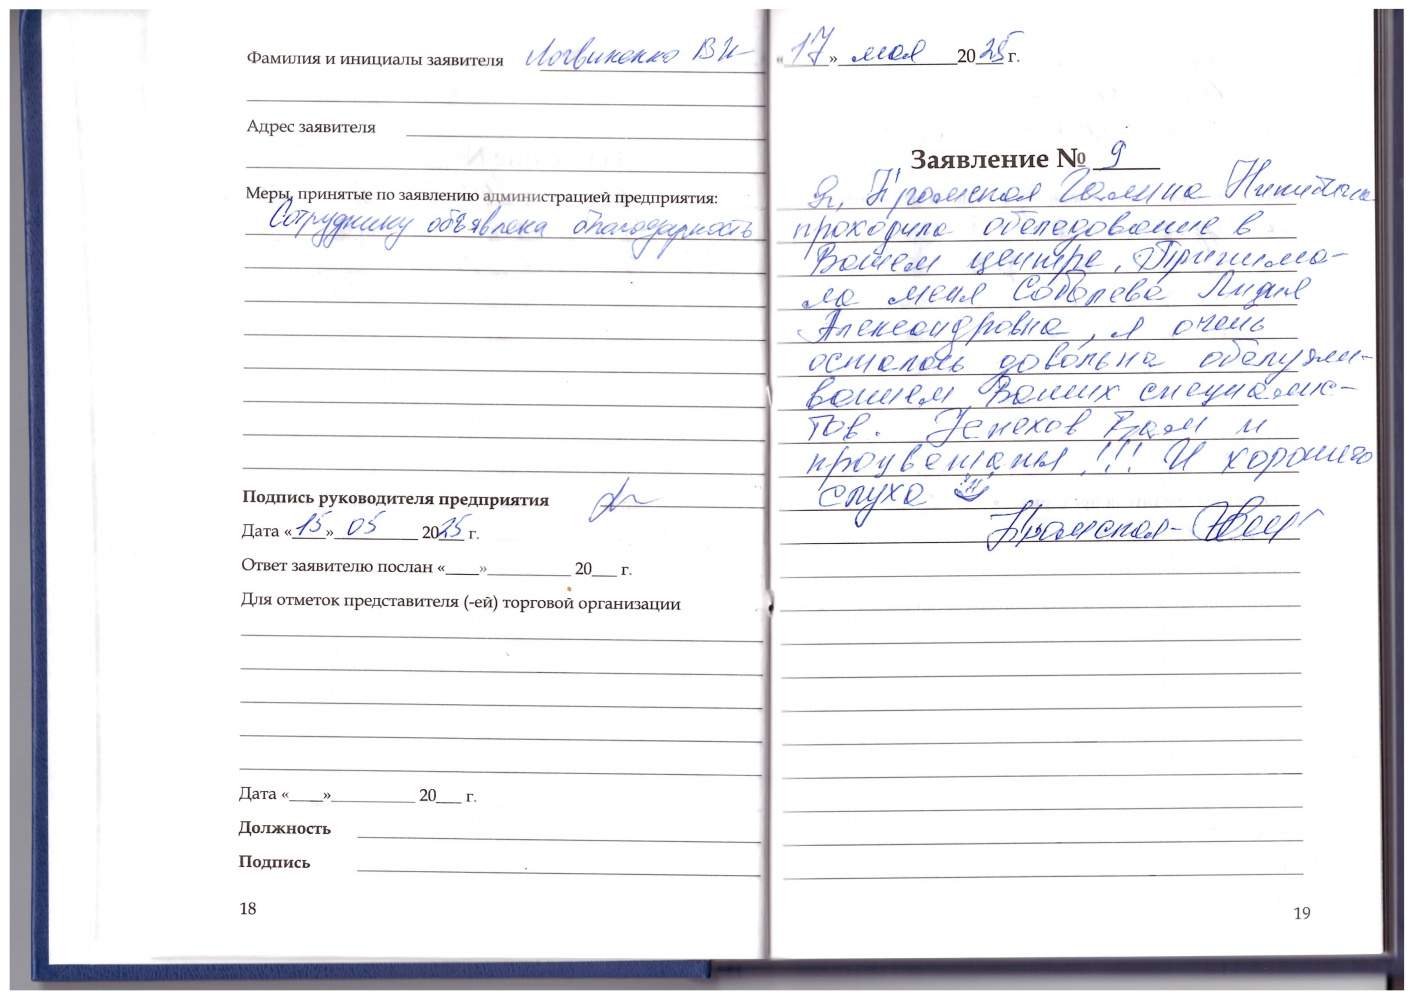 Фамилия и инициалы заявителя Логвиненко В И
Адрес заявителя
Меры, принятые по заявлению администрацией предприятия:
Сотруднику объявлена благодарность
Подпись руководителя предприятия
Дата «15» 05 2025 г.
Ответ заявителю послан «____»__________ 20___ г.
Для отметок представителя (-ей) торговой организации
Дата «____»__________ 20___ г.
Должность
Подпись
18
«17» мая 2025 г.
Заявление № 9
Я, Галина Никитична
проходила обследование в
Вашем центре. Принима-
ла меня Соболева Лидия
Александровна, я очень
осталась довольна обслужи-
ванием Ваших специалис-
тов. Успехов Вам и
процветания!!! И хорошего
слуха
19